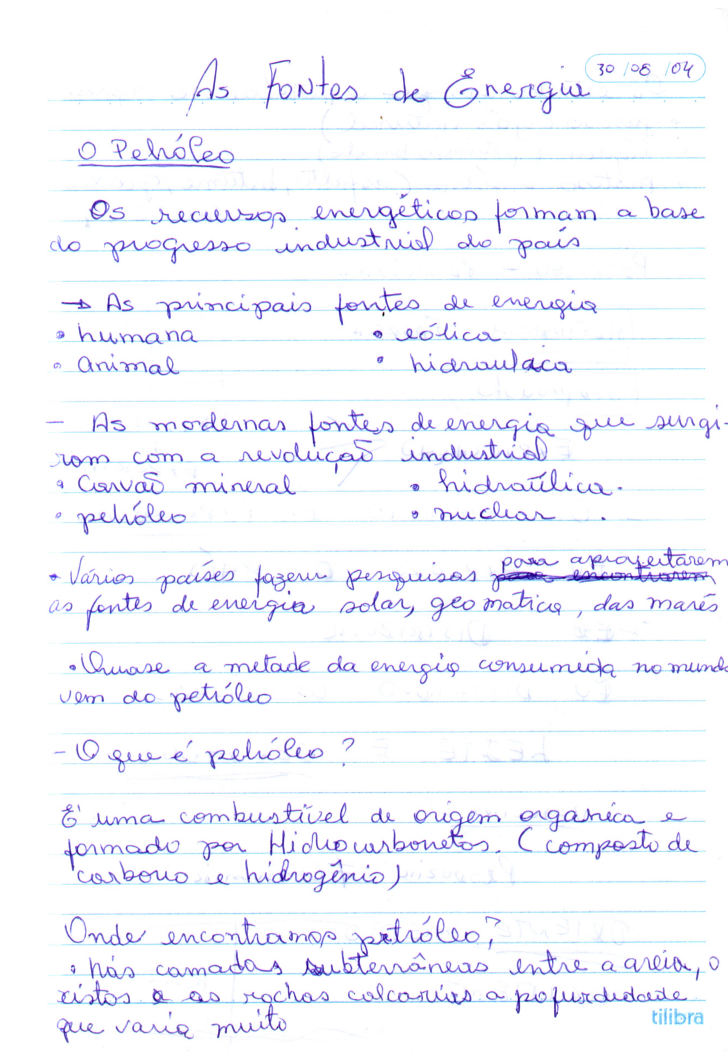 30/08/04
As Fontes de Energia
O Petróleo
Os recursos energéticos formam a base
do progresso industrial do país
→ As principais fontes de energia
• humana • eólica
• animal • hidraulaca
– As modernas fontes de energia que surgi-
ram com a revolução industrial
• Carvão mineral • hidraúlica.
• petróleo • nuclear .
• Vários países fazem pesquisas para aproveitarem
as fontes de energia solar, geomatica, das marés
• Quase a metade da energia consumida no mundo
vem do petróleo
– O que é petróleo ?
É uma combustível de origem organica e
formado por Hidrocarbonetos. (composto de
carbono e hidrogênio)
Onde encontramos petróleo?
• nás camadas subterrâneas entre a areia, o
xistos e as rochas calcarias a pofurdidade
que varia muito
tilibra